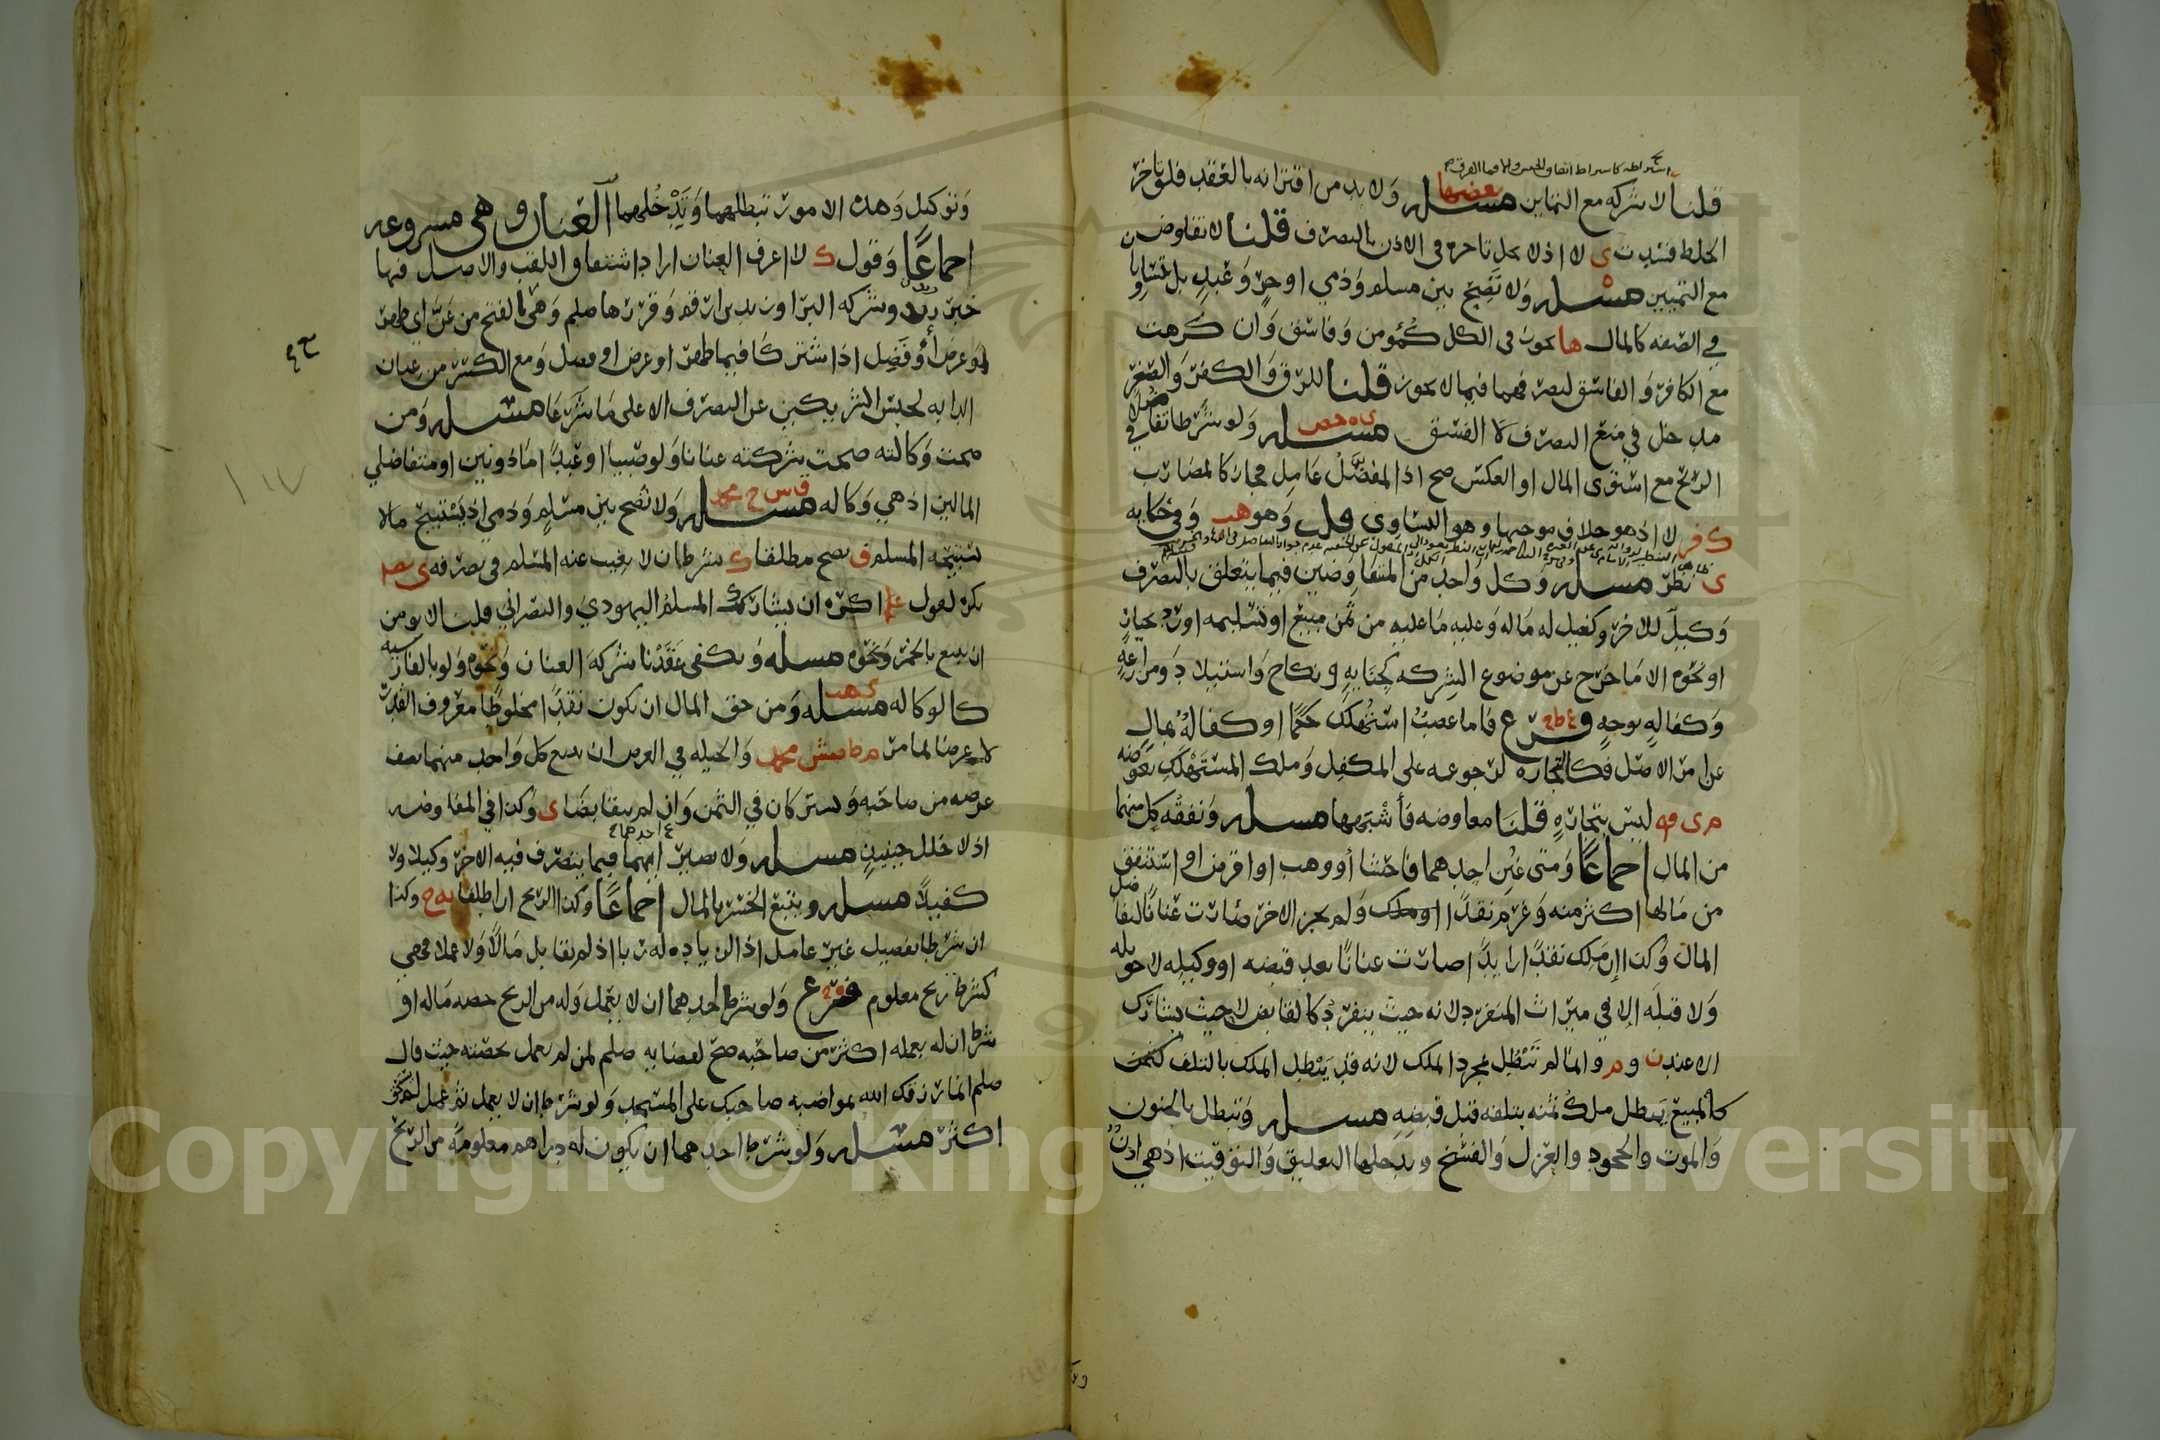 قلنا لا شركه مع التماين مسله ولا بد من اقترانه بالعقد فلو تاخر
بعضها
الخلط فسدت ى لا اذ لا يحل تاخره فى الاذن بالتصرف قلنا لا تفاوض
مع التميين مسله ولا تصح بين مسلم وذمي او حر وعبد بل تساويا
في الصفه كالمال ها يجوز فى الكل كمؤمن وفاسق وان كرهت
مع الكافر والفاسق لتصرفهما فيما لا يجوز قلنا للرق والكفر والصغر
مدخل في منع التصرف لا الفسق مسله ولو شرطا تفاضلا في
الربح مع استوى المال او العكس صح اذ المفضل عامل فجاز كالمضارب
ك فر لا اذ هو خلاف موجبها وهو التساوى قلت وهو هب وفي حكايه
ى نظر مسله وكل واحد من المتفاوضين فيما يتعلق بالتصرف
وكيل للاخر وكفيل له ماله وعليه ما عليه من ثمن مبيع او تسليمه او رد بخيار
او نحوه الا ما خرج عن موضوع الشركه كجنايه ونكاح واستيلاد ومزارعه
وكفاله بوجه فرع فاما غصب استهلك حكما او كفاله بمال
عن امر الاصل فكالتجاره لرجوعه على المكفل وملك المستهلك بعوضه
م ى قه ليس بتجاره قلنا معاوضه فأشبهها مسله ونفقه كل منهما
من المال اجماعا ومتى غبن احدهما فاحشا أو وهب او اقرض او استنفق
من مالها اكثر منه وغرم نقدا او ملك ولم يجز الاخر صارت عنانا لتفاضل
المال وكذا إن ملك نقدا زايدا صارت عنانا بعد قبضه او وكيله لا حويله
ولا قبله إلا في ميراث المنفرد لانه حيث ينفرد كالقابض لا حيث يشارك
الا عند ن و م وانما لم تبطل بمجرد الملك لانه قد يبطل الملك بالتلف كثمن
كالمبيع يبطل ملك ثمنه بتلفه قبل قبضه مسله وتبطل بالجنون
والموت والجحود والعزل والفسخ ويدخلها التعليق والتوقيت اذ هي اذن
وتوكيل وهذه الامور تبطلهما وتدخلهما العنان وهي مشروعه
اجماعا وقول ك لا اعرف العنان اراد اشتقاق اللقب والاصل فيها
خبر وشركه البرا وزيد بن ارقم وقررها صلم وهي بالفتح من عن اي ظهر
او عرض أو فضل اذا شتركا فيما ظهر او عرض او فضل ومع الكسر من عنان
الدابه لحبس الشريكين عن التصرف الا على ما شرعا مسله ومن
صحت وكالته صحت شركته عنانا ولو صبيا او عبدا ماذونين او متفاضلي
المالين اذ هي وكاله مسله ولا تصح بين مسلم وذمي اذ يستبيح مالا
ستبيحه المسلم ق يصح مطلقا ك بشرط ان لا يغيب عنه المسلم في تصرفه ى
يكره لقول علي اكره ان يشارك المسلم اليهودي والنصراني قلنا لا يومن
ان يبيع بالخمر ونحوه مسله ويكفى عقدنا شركه العنان ونحوه ولو بالفارسيه
كالوكاله مسله ومن حق المال ان يكون نقدا مخلوطا معروف القدر
لا عرضا لما مر م ط ش محمد والحيله في العرض ان يبيع كل واحد منهما نصف
عرضه من صاحبه ويشتركان في الثمن وان لم يتقابضا ى وكذا في المفاوضه
اذ لا خلل حينئذ مسله ولا يصير ايهما فيما يتصرف فيه الاخر وكيلا ولا
كفيلا مسله ويتبع الخسر المال اجماعا وكذا الربح ان اطلقا يه ح وكذا
ان شرطا تفضيل غير عامل اذ الزياده له ربا اذ لم يقابل مالا ولا عملا فهي
كشرط ربح معلوم فرع ولو شرط احدهما ان لا يعمل وله من الربح حصه ماله او
شرط ان له بعمله اكثر من صاحبه صح لقضايه صلم لمن لم يعمل بحصته حيث قال
صلم انما رزقك الله بمواضبه صاحبك على المسجد ولو شرط ان لا يعمل ثم عمل
اكثر مسله ولو شرط احدهما ان يكون له دراهم معلومه من الربح
Copyright © King Saud University